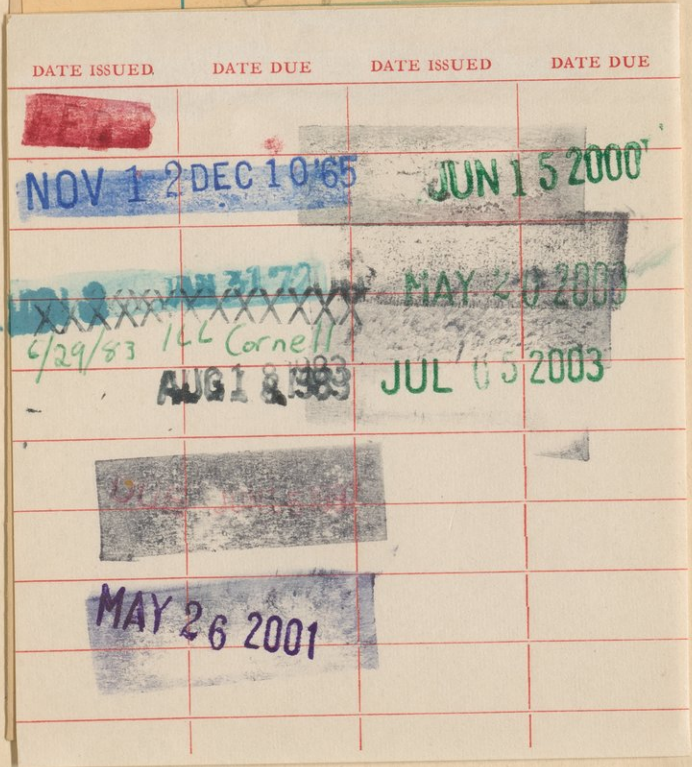 DATE ISSUED DATE DUE DATE ISSUED DATE DUE
NOV 1 2 DEC 10 '65 JUN 1 5 2000
JAN 31 72 MAY 2 0 2003
XXXXXXXXXXXX
6/29/83 ILL Cornell
AUG 1 8 1983 JUL 0 5 2003
MAY 26 2001